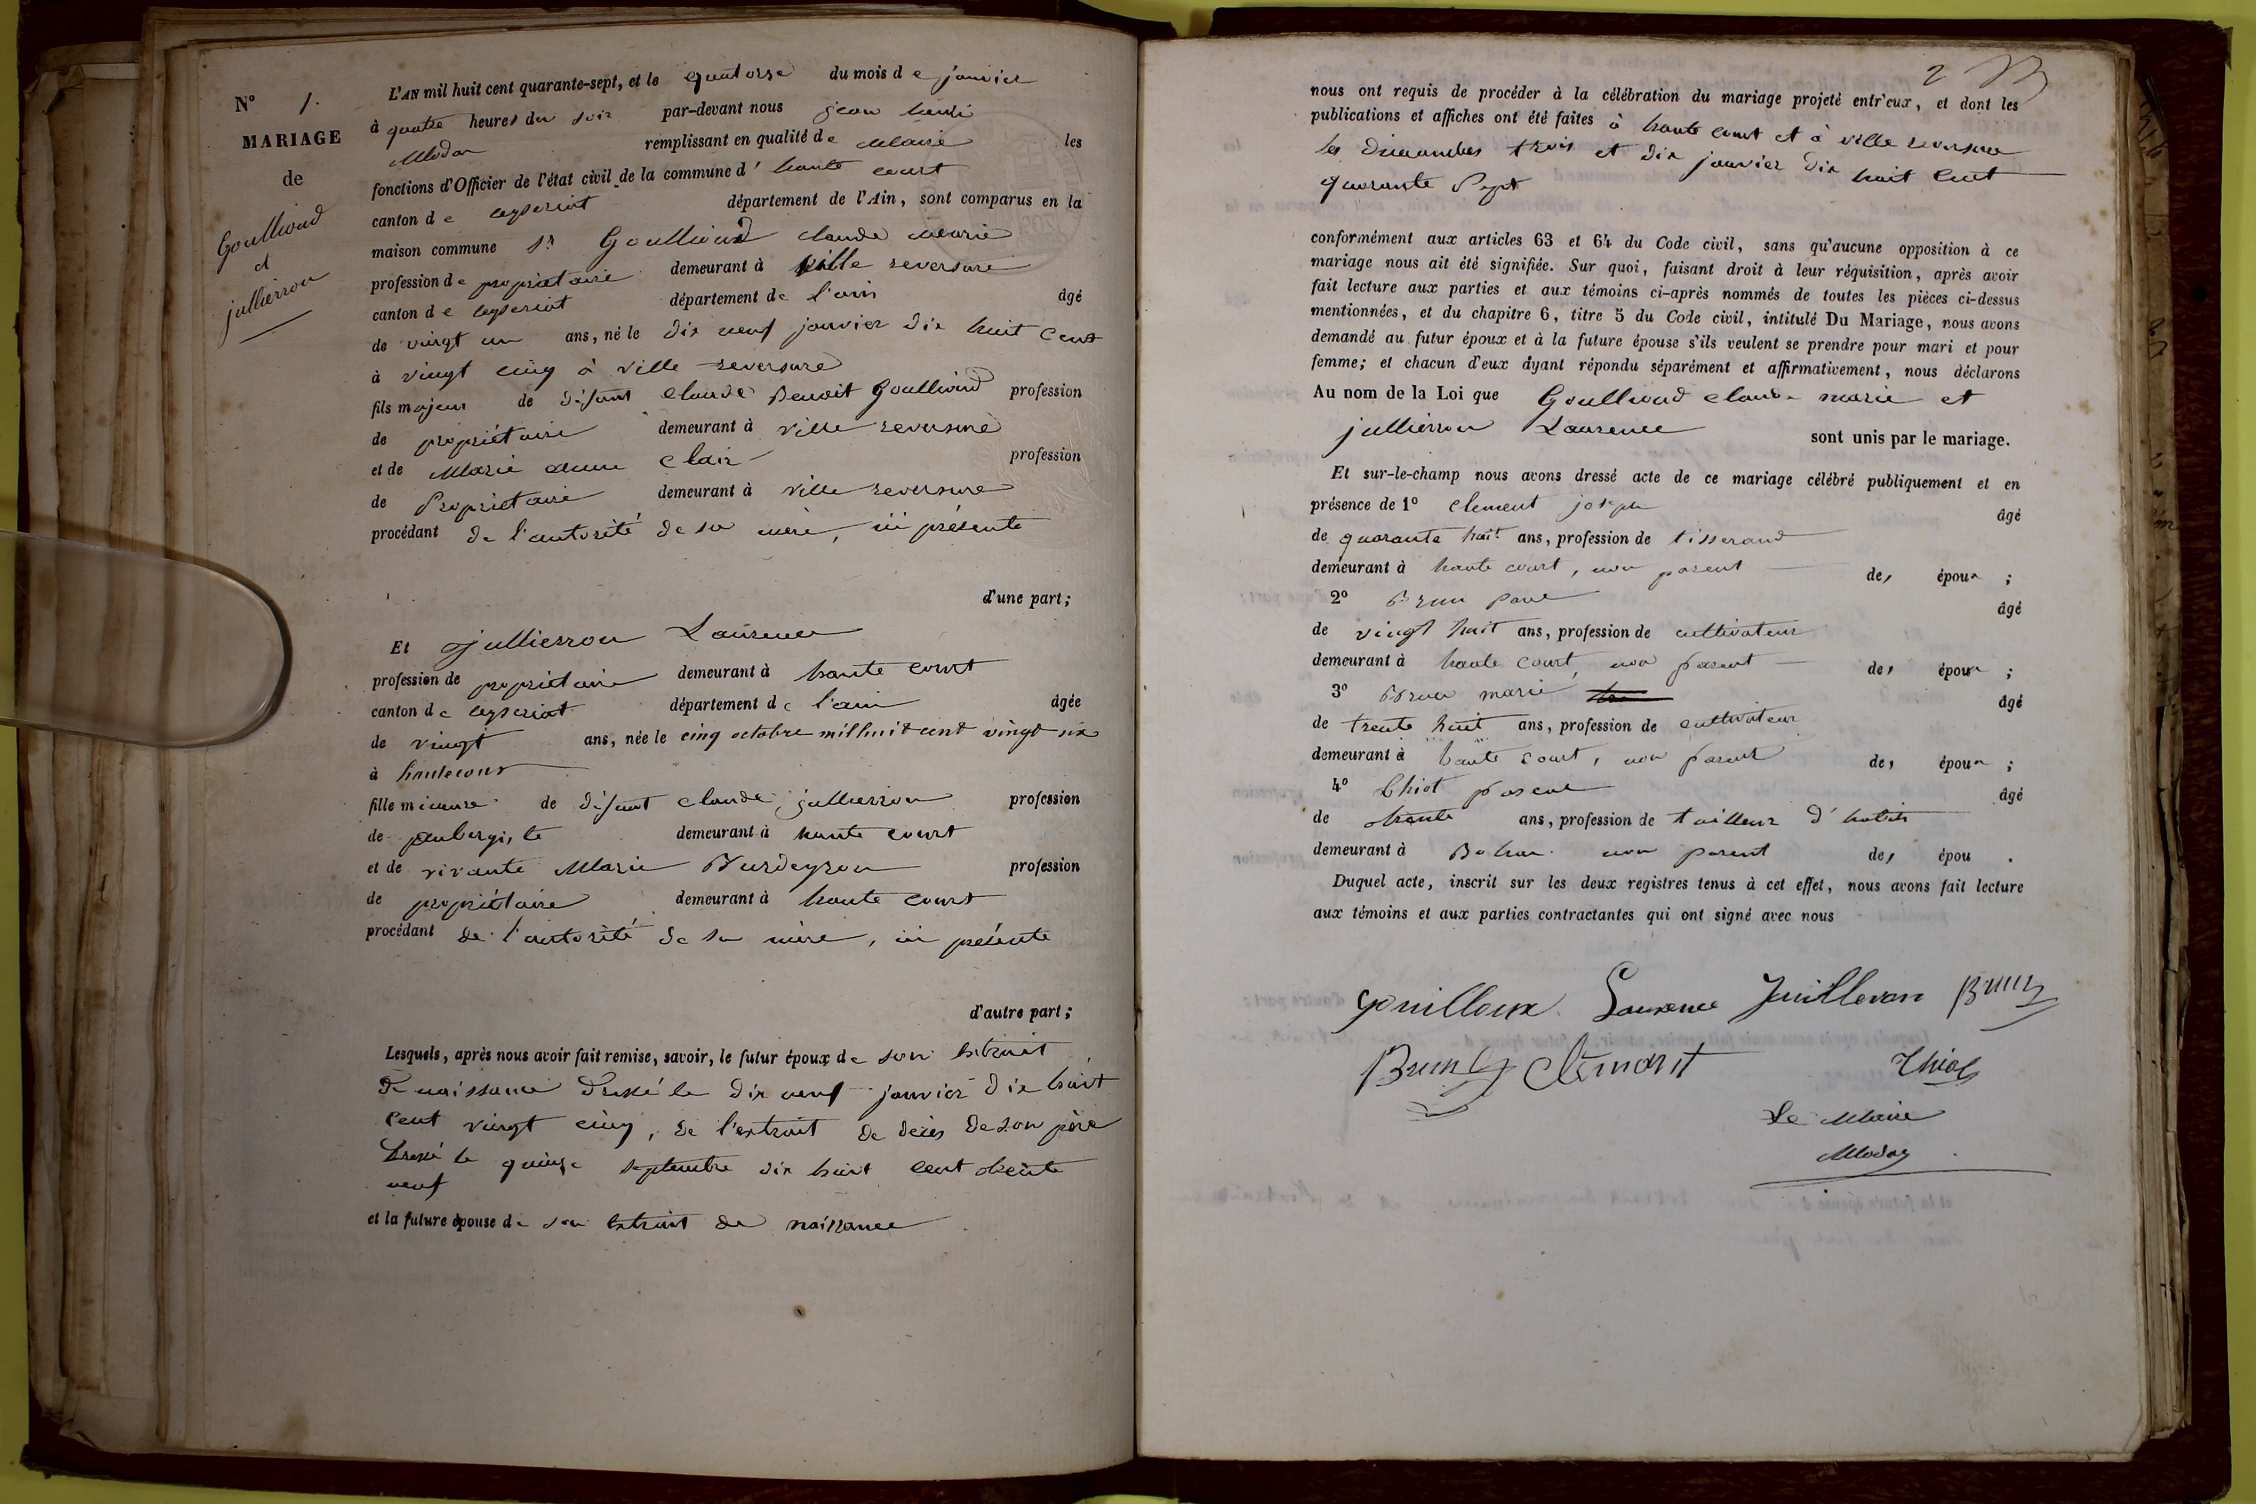 N° 1.
MARIAGE
de
Goullioud
et
jullierron
L'AN mil huit cent quarante-sept, et le quatorze du mois de janvier
à quatre heures du soir par-devant nous jean
remplissant en qualité de Maire les
fonctions d'Officier de l'état civil de la commune d'haute court
canton de ceyseriat département de l'Ain, sont comparus en la
maison commune Sr Goullioud claude marie
profession de propriétaire demeurant à ville reversure
canton de ceyseriat département de l'ain âgé
de vingt un ans, né le dix neuf janvier dix huit cent
à vingt cinq à ville reversure
fils majeur de défunt claude Benoit Goullioud profession
de propriétaire demeurant à ville reversure
et de Marie anne clair profession
de Propriétaire demeurant à ville reversure
procédant de l'autorité de sa mère, ici présente
d'une part;
Et jullierron Laurence
profession de propriétaire demeurant à haute court
canton de ceyseriat département de l'ain âgée
de vingt ans, née le cinq octobre mil huit cent vingt six
à hautecour
fille mineure de défunt claude jullierron profession
de aubergiste demeurant à haute court
et de vivante Marie profession
de propriétaire demeurant à haute court
procédant de l'autorité de sa mère, ici présente
d'autre part;
Lesquels, après nous avoir fait remise, savoir, le futur époux de son extrait
de naissance dressé le dix neuf janvier dix huit
cent vingt cinq, de l'extrait de décès de son père
dressé le quinze septembre dix huit cent trente
neuf
et la future épouse de son extrait de naissance
2
nous ont requis de procéder à la célébration du mariage projeté entr'eux, et dont les
publications et affiches ont été faites à haute court et à ville reversure
les dimanches trois et dix janvier dix huit cent
quarante Sept
conformément aux articles 63 et 64 du Code civil, sans qu'aucune opposition à ce
mariage nous ait été signifiée. Sur quoi, faisant droit à leur réquisition, après avoir
fait lecture aux parties et aux témoins ci-après nommés de toutes les pièces ci-dessus
mentionnées, et du chapitre 6, titre 5 du Code civil, intitulé Du Mariage, nous avons
demandé au futur époux et à la future épouse s'ils veulent se prendre pour mari et pour
femme; et chacun d'eux ayant répondu séparément et affirmativement, nous déclarons
Au nom de la Loi que Goullioud claude marie et
jullierron Laurence sont unis par le mariage.
Et sur-le-champ nous avons dressé acte de ce mariage célébré publiquement et en
présence de 1° clement joseph âgé
de quarante huit ans, profession de tisserand
demeurant à haute court, non parent des époux;
2° Brun âgé
de vingt huit ans, profession de cultivateur
demeurant à haute court, non parent des époux;
3° Brun marie âgé
de trente huit ans, profession de cultivateur
demeurant à haute court, non parent des époux;
4° Chiot pascal âgé
de trente ans, profession de tailleur d'habits
demeurant à Bohan non parent des épou.
Duquel acte, inscrit sur les deux registres tenus à cet effet, nous avons fait lecture
aux témoins et aux parties contractantes qui ont signé avec nous
gouilloux Laurence Juilleron Brun
Brun Clémant Thiot
Le Maire